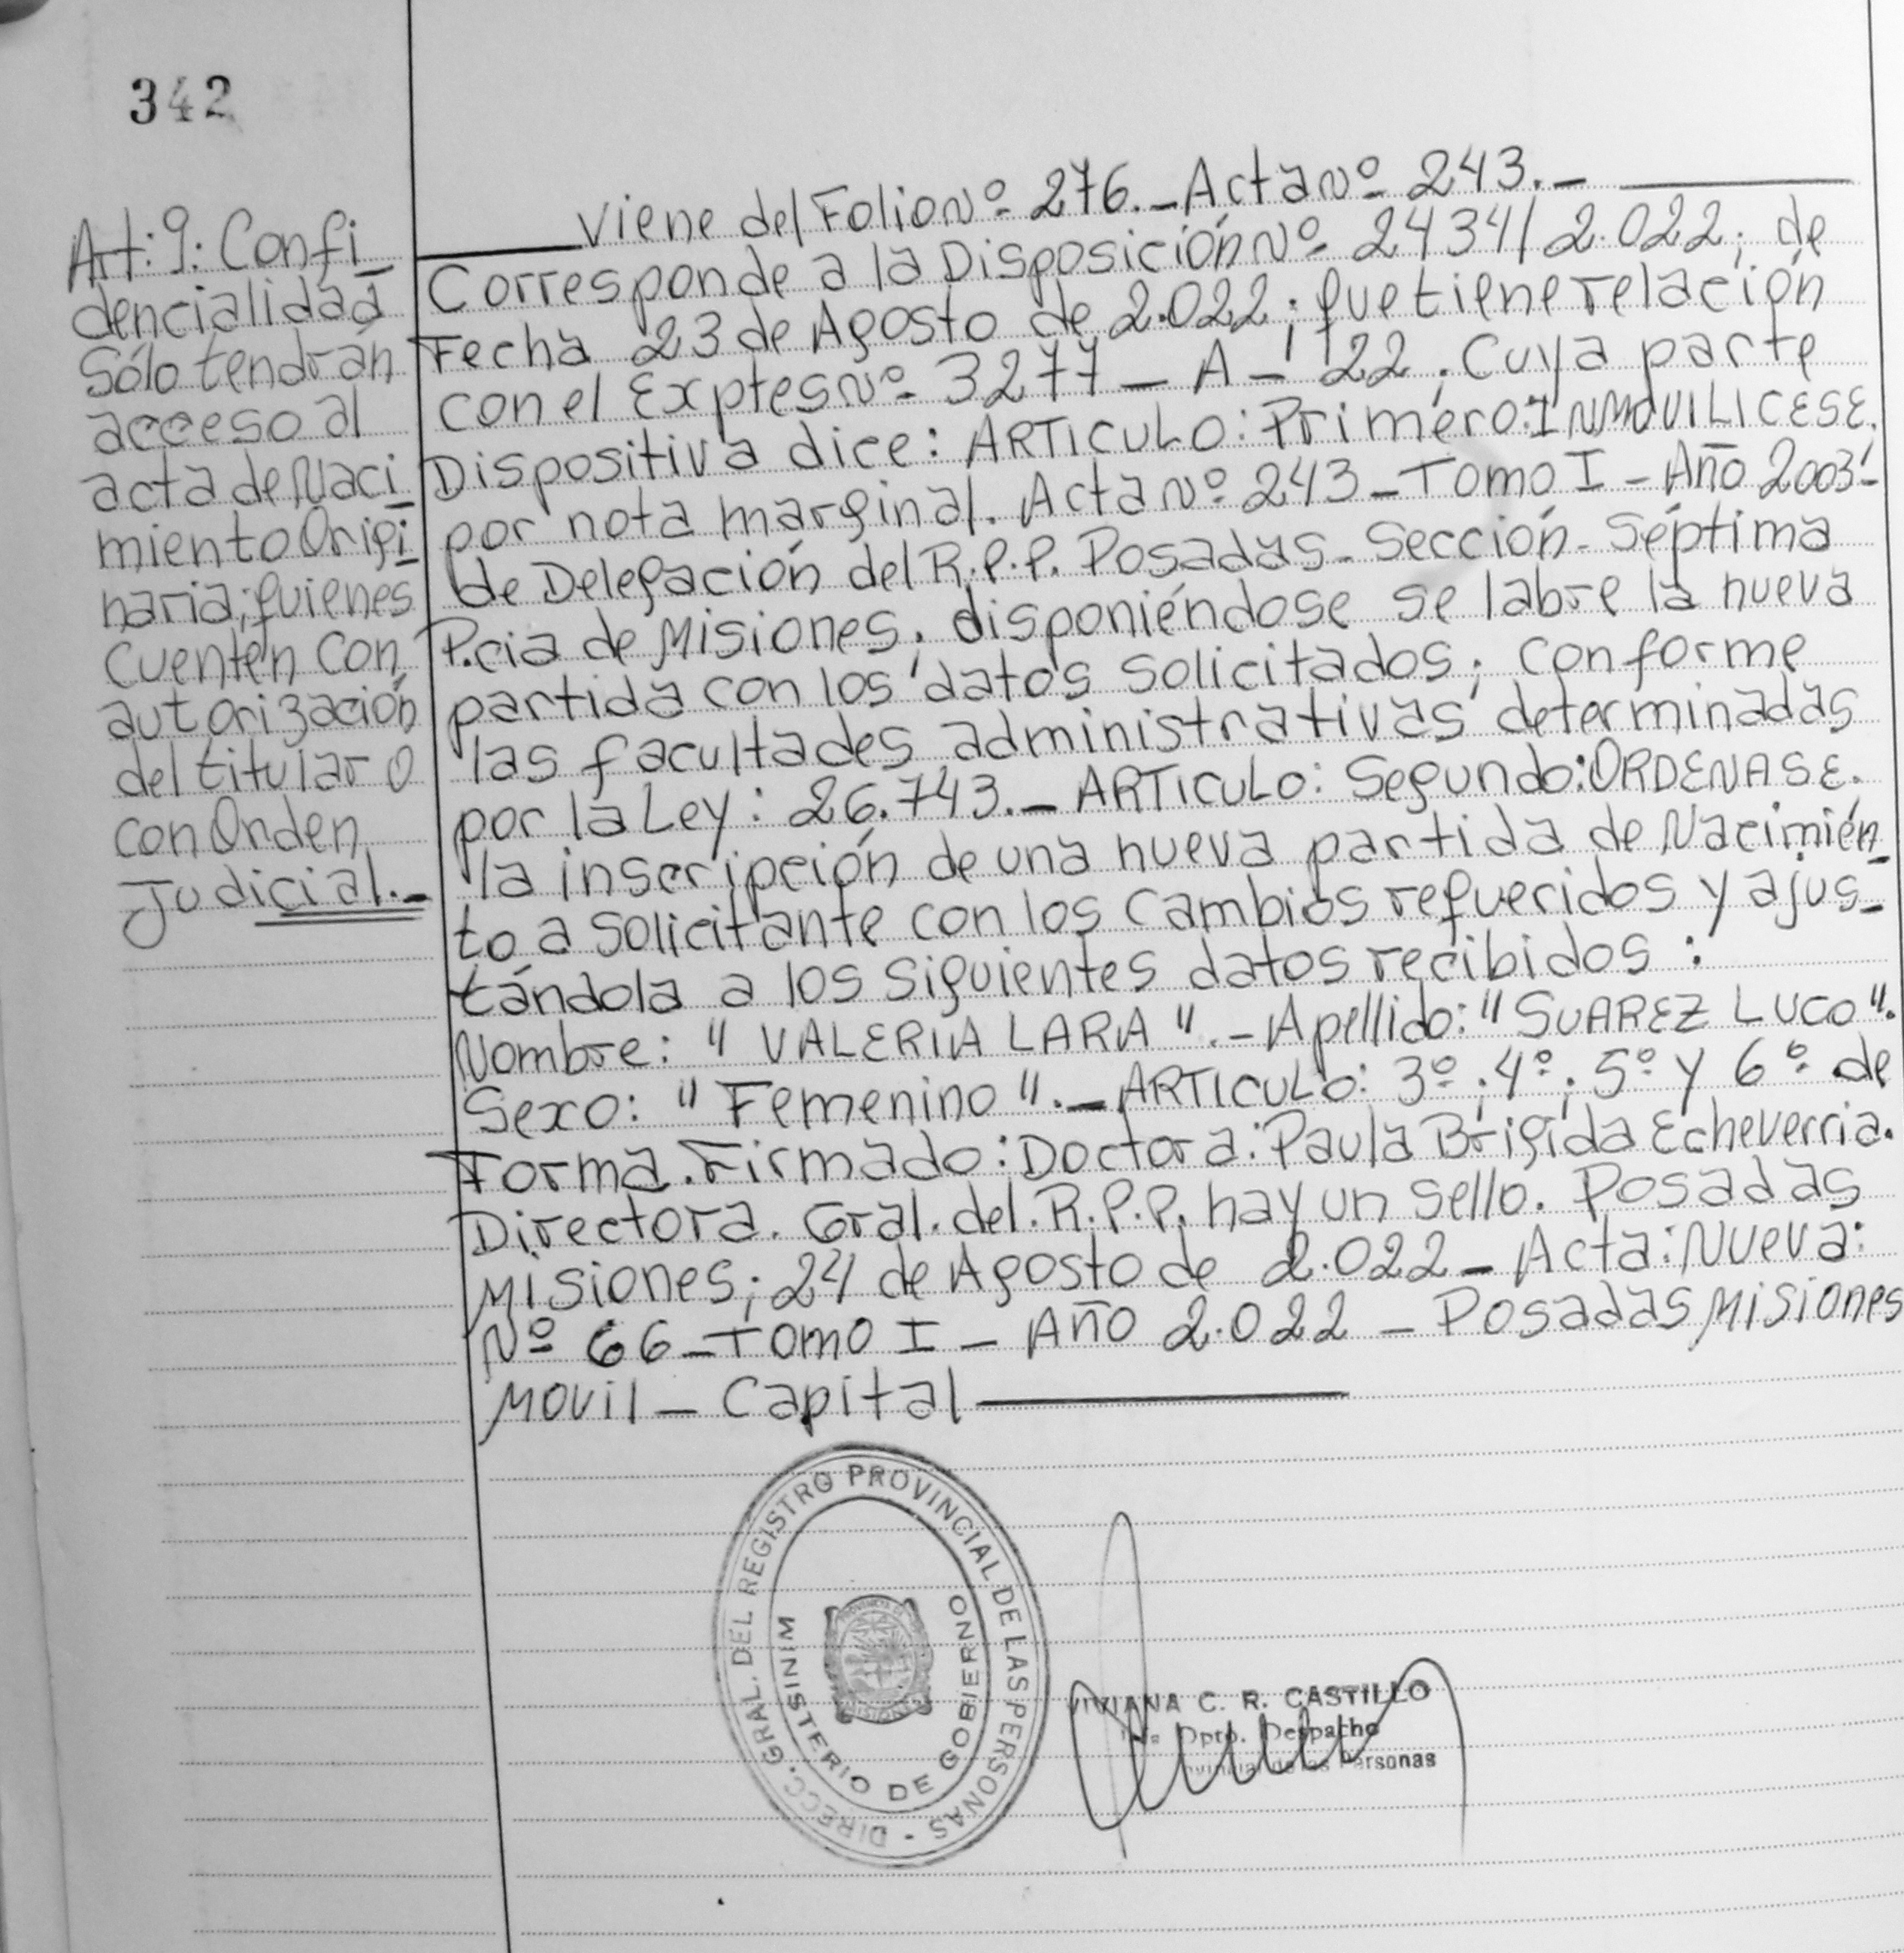 342
Art: 9: Confi_
dencialidad
Sólo tendrán
acceso al
acta de Naci_
miento Origi_
naria; quienes
Cuenten con
autorización
del titular o
con Orden
Judicial._
Viene del Folio Nº 276._ Acta Nº 243._
Corresponde a la Disposición Nº 2434/2.022; de
Fecha 23 de Agosto de 2.022; que tiene relación
con el Exptes Nº 3277 _ A _ '22; Cuya parte
Dispositiva dice: ARTICULO: Primero: INMOVILICESE.
por nota marginal. Acta Nº 243 _ Tomo I _ Año 2003 _
de Delegación del R.P.P. Posadas _ Sección _ Séptima
P.cia de Misiones; disponiéndose se labre la nueva
partida con los datos solicitados; conforme
las facultades administrativas determinadas
por la Ley: 26.743._ ARTICULO: Segundo: ORDENASE.
la inscripción de una nueva partida de Nacimién_
to a solicitante con los cambios requeridos y ajus_
tándola a los siguientes datos recibidos:
Nombre: " VALERIA LARA " ._ Apellido: " SUAREZ LUCO ".
Sexo: " Femenino " ._ ARTICULO: 3º; 4º; 5º y 6º de
Forma. Firmado: Doctora: Paula Brígida Echeverria.
Directora. Gral. del. R.P.P. hay un sello. Posadas
Misiones; 24 de Agosto de 2.022 _ Acta: Nueva:
Nº 66 _ Tomo I _ Año 2.022 _ Posadas Misiones
Movil _ Capital
DIRECC. GRAL. DEL REGISTRO PROVINCIAL DE LAS PERSONAS -
MINISTERIO DE GOBIERNO
PROVINCIA DE
MISIONES
VIVIANA C. R. CASTILLO
Dpto. Despacho
Personas